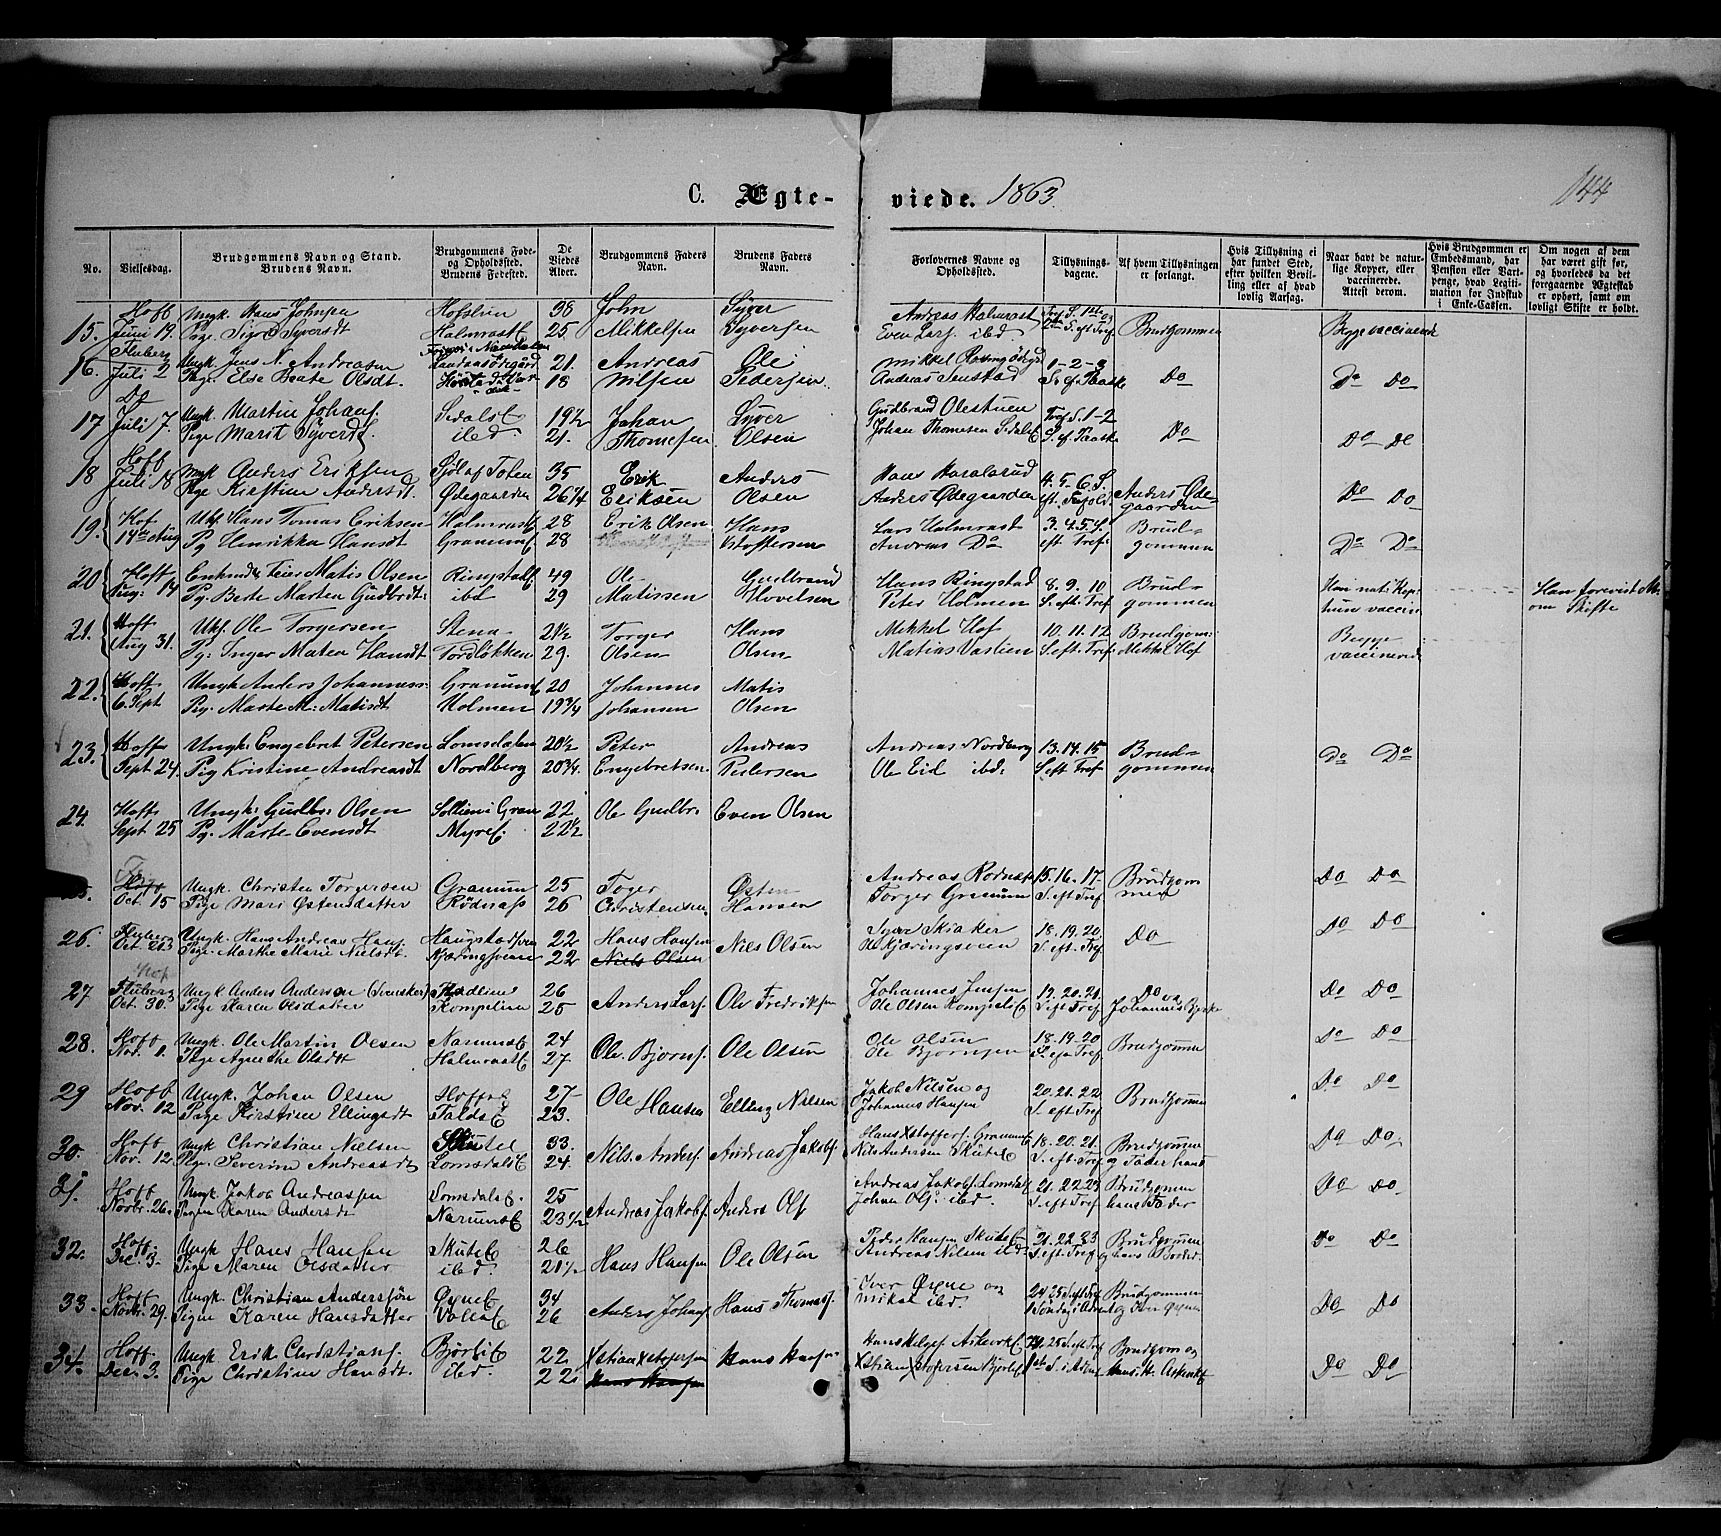 C. Ægte- viede. 1863.
144
No.
Vielsesdag.
Brudgommens Navn og Stand.
Brudens Navn.
Brudgommens Føde-
og Opholdssted.
Brudens Fødested.
De
Viedes
Alder.
Brudgommens Faders
Navn.
Brudens Faders
Navn.
Forlovernes Navne og
Opholdssted.
Tillysnings-
dagene.
Af hvem Tillysningen
er forlangt.
Hvis Tillysning ei
har fundet Sted,
efter hvilken Bevil-
ling eller af hvad
lovlig Aarsag.
Naar havt de natur-
lige Kopper, eller
vaccinerede.
Attest derom.
Hvis Brudgommen er
Embedsmand, har
Pension eller Vart-
penge, hvad Legiti-
mation for Indskud
i Enke-Cassen.
Om nogen af dem
har været gift før,
og hvorledes da det
foregaaende Ægteskab
er ophørt, samt om
lovligt Skifte er holdt.
Hoff Ungk. Hans Johnsen Hofslien 38 John Syver Andreas Halmrast
15. Juni 19. Pige Sigrid Syversdt Halmrastt 25 Mikkelsen Syversen Even Lars. ibd. Brudgommen Begge vaccinerede
Fluberg Ungk Jens N. Andreasen 21. Andreas Ole Mikkel 1-2-3
16. Juli 2 Pige Else Beate Olsdt. 18 Nilsen Pedersen Andreas Senstad S. ef. Paaske Do Do Do
Do Ungk. Martin Johans. SedalsE 19½ Johan Syver Gudbrand Olestuen Tref. S. 1-2
17 Juli 7. Pige Marit Syversd. ibd. 21. Thomesen Olsen Johan Thomesen SedalsE S. ef. Paaske Do Do Do
Hoff Ungk Anders Eriksen Sjøl af Toten 35 Erik Anders Hans Haralsrud 4. 5. 6. S. Anders Øde-
18 Juli 18 Pige Kirstine Andersdt. Ødegaarden 26¼ Eriksen Olsen Anders Ødegaarden eft. Trefold. gaarden Do Do
Hof Ukf. Hans Tomas Eriksen HalmrastE 28 Erik Olsen Hans Lars Halmrast 3. 4. 5. S. Brud-
19. 14de Aug Pg. Henrikka Hansdt Granum 28 Kristoffersen Andreas Do eft Tref: gommen Do Do
20 Hoff Enkmd. Feier Matis Olsen Ringstad 49 Ole Gudbrand Hans Ringstad 8. 9. 10 Brud-
Aug: 14 Pg. Berte Marten Gudbrdt: ibd 29 Matissen Hovelsen Peter Holmen S. eft. Tref gommen Han nat: Kop: hun vaccin Han foreviist At. om Skifte
21. Hoff Ukf. Ole Torgersen Stena 21½ Torger Hans Mikkel Hof 10. 11. 12 Brudgom: Begge
Aug 31. Pg: Inger Matea Hansdt Tordløkken 29. Olsen Olsen Matias Vaslien S. eft. Tref Mikkel Hof vaccinerede
22. Hoff Ungk Anders Johanness: GranumE 20 Johannes Matis
6. Sept Pg. Marte M: Matisdt Holmen 19¾ Johansen Olsen
23. Hoff Ungk: Engebret Petersen Lomsdalen 20½ Peter Andreas Andreas Nordberg 13. 14. 15 Brud-
Sept 24. Pig Kristine Andreasdt Nordberg 20¾. Engebretsen. Pedersen Ole Eid ibd: S. eft Tref gommen Do Do
24. Hoff Ungk: Gudbr: Olsen Sollien i Gran 22 Ole Gudbr: Even Olsen
Sept 25 Pg. Marte Evensdt MyreE. 22½
25. Hoff Ungk. Christen Torgersen Granum 25 Toger Østen Andreas Rødnæs 15. 16. 17. Brudgom Do Do
Oct. 15 Pige Mari Østensdatter Rødnæs 26 Christensen Hansen Torger Granum S. eft Tref men
26. Fluberg Ungk. Hans Andreas Hans. 22 Hans Hansen Nils Olsen Syver Skiaker 18. 19. 20. Do Do Do
Oct. 23 Pige. Marthe Marie Nielsdt. 22 Niels Olsen S. eft. Tref
27 Fluberg Hof Ungk Anders Anderson (Svensker) 26 Anders Lars. Ole Fredriksen Johannes Jensen 19. 20. 21. Do og Do Do
Oct. 30. Pige Karen Olsdatter Kompelien 25 Ole Olsen S. eft Tref Johannes
28. Hoff Ungk. Ole Martin Olsen NarumsE 24 Ole. Bjørns. Ole Olsen Ole Olsen 18. 19. 20 Brudgommen Do Do
Nov. 1. Pige Agnethe Olsdt HalmrastE 27. Ole Bjørnsen S. eft Tref
29 Hoff Ungk. Johan Olsen 27 Ole Hansen Elling Nilsen Jakob Nilsen og 20. 21. 22 Brudgommen Do Do
Nov. 12 Pige Kirstine Ellingsdt FaldsE 23. Johannes Hansen S. eft Tref
30. Hoff Ungk Christian Nielsen Skutel 33. Nils. Anders. Andreas Jakobs. Hans Xstoffers. GranumE 18. 20. 21. Brudgommen Do Do
Nov. 12. Pige. Severine Andreasdt LomsdalsE 24. Nils Andersen SkutelE S. eft. Tref og Fader hans
31. Hoff Ungk Jakob Andreassen LomsdalsE. 25 Andreas Jakobs. Anders Ols Andreas Jakobs. Lomsdal 21. 22. 23 Brudgommen Do Do
Novbr. 26. Pigen Karen Andersdt NarumsE 23½ Johan Ols. ibd. S. eft Tref hans Fader
32. Hoff Ungk Hans Hansen SkuteE 26 Hans Hansen Ole Olsen Peder Hansen SkuteE 21. 22. 23 Brudgommen Do Do
Dec. 3. Pige Maren Olsdatter ibd. 21½ Andreas Nilsen ibd. S. eft Tref
33. Hoff Ungk. Christian Anderssøn ØyneE 34 Anders Johans. Hans Thomass. Iver Øyne og 24 25 S. eft Tref Brudgommen Do Do
Novbr. 29. Pigen Karen Hansdatter VollaE 26 Mikal ibd. og Iver Øynen
34. Hoff. Ungk Erik Christians. BjørliE 22 Xstian Xstophersen Hans Hansen 24. 25 S. eft Tref Brudgom og Do Do
Dec. 3. Pige Christine Hansdt. ibd. 22 Hans Hansen Xstian Xstophersen BjørliE 1ste S. i Advent